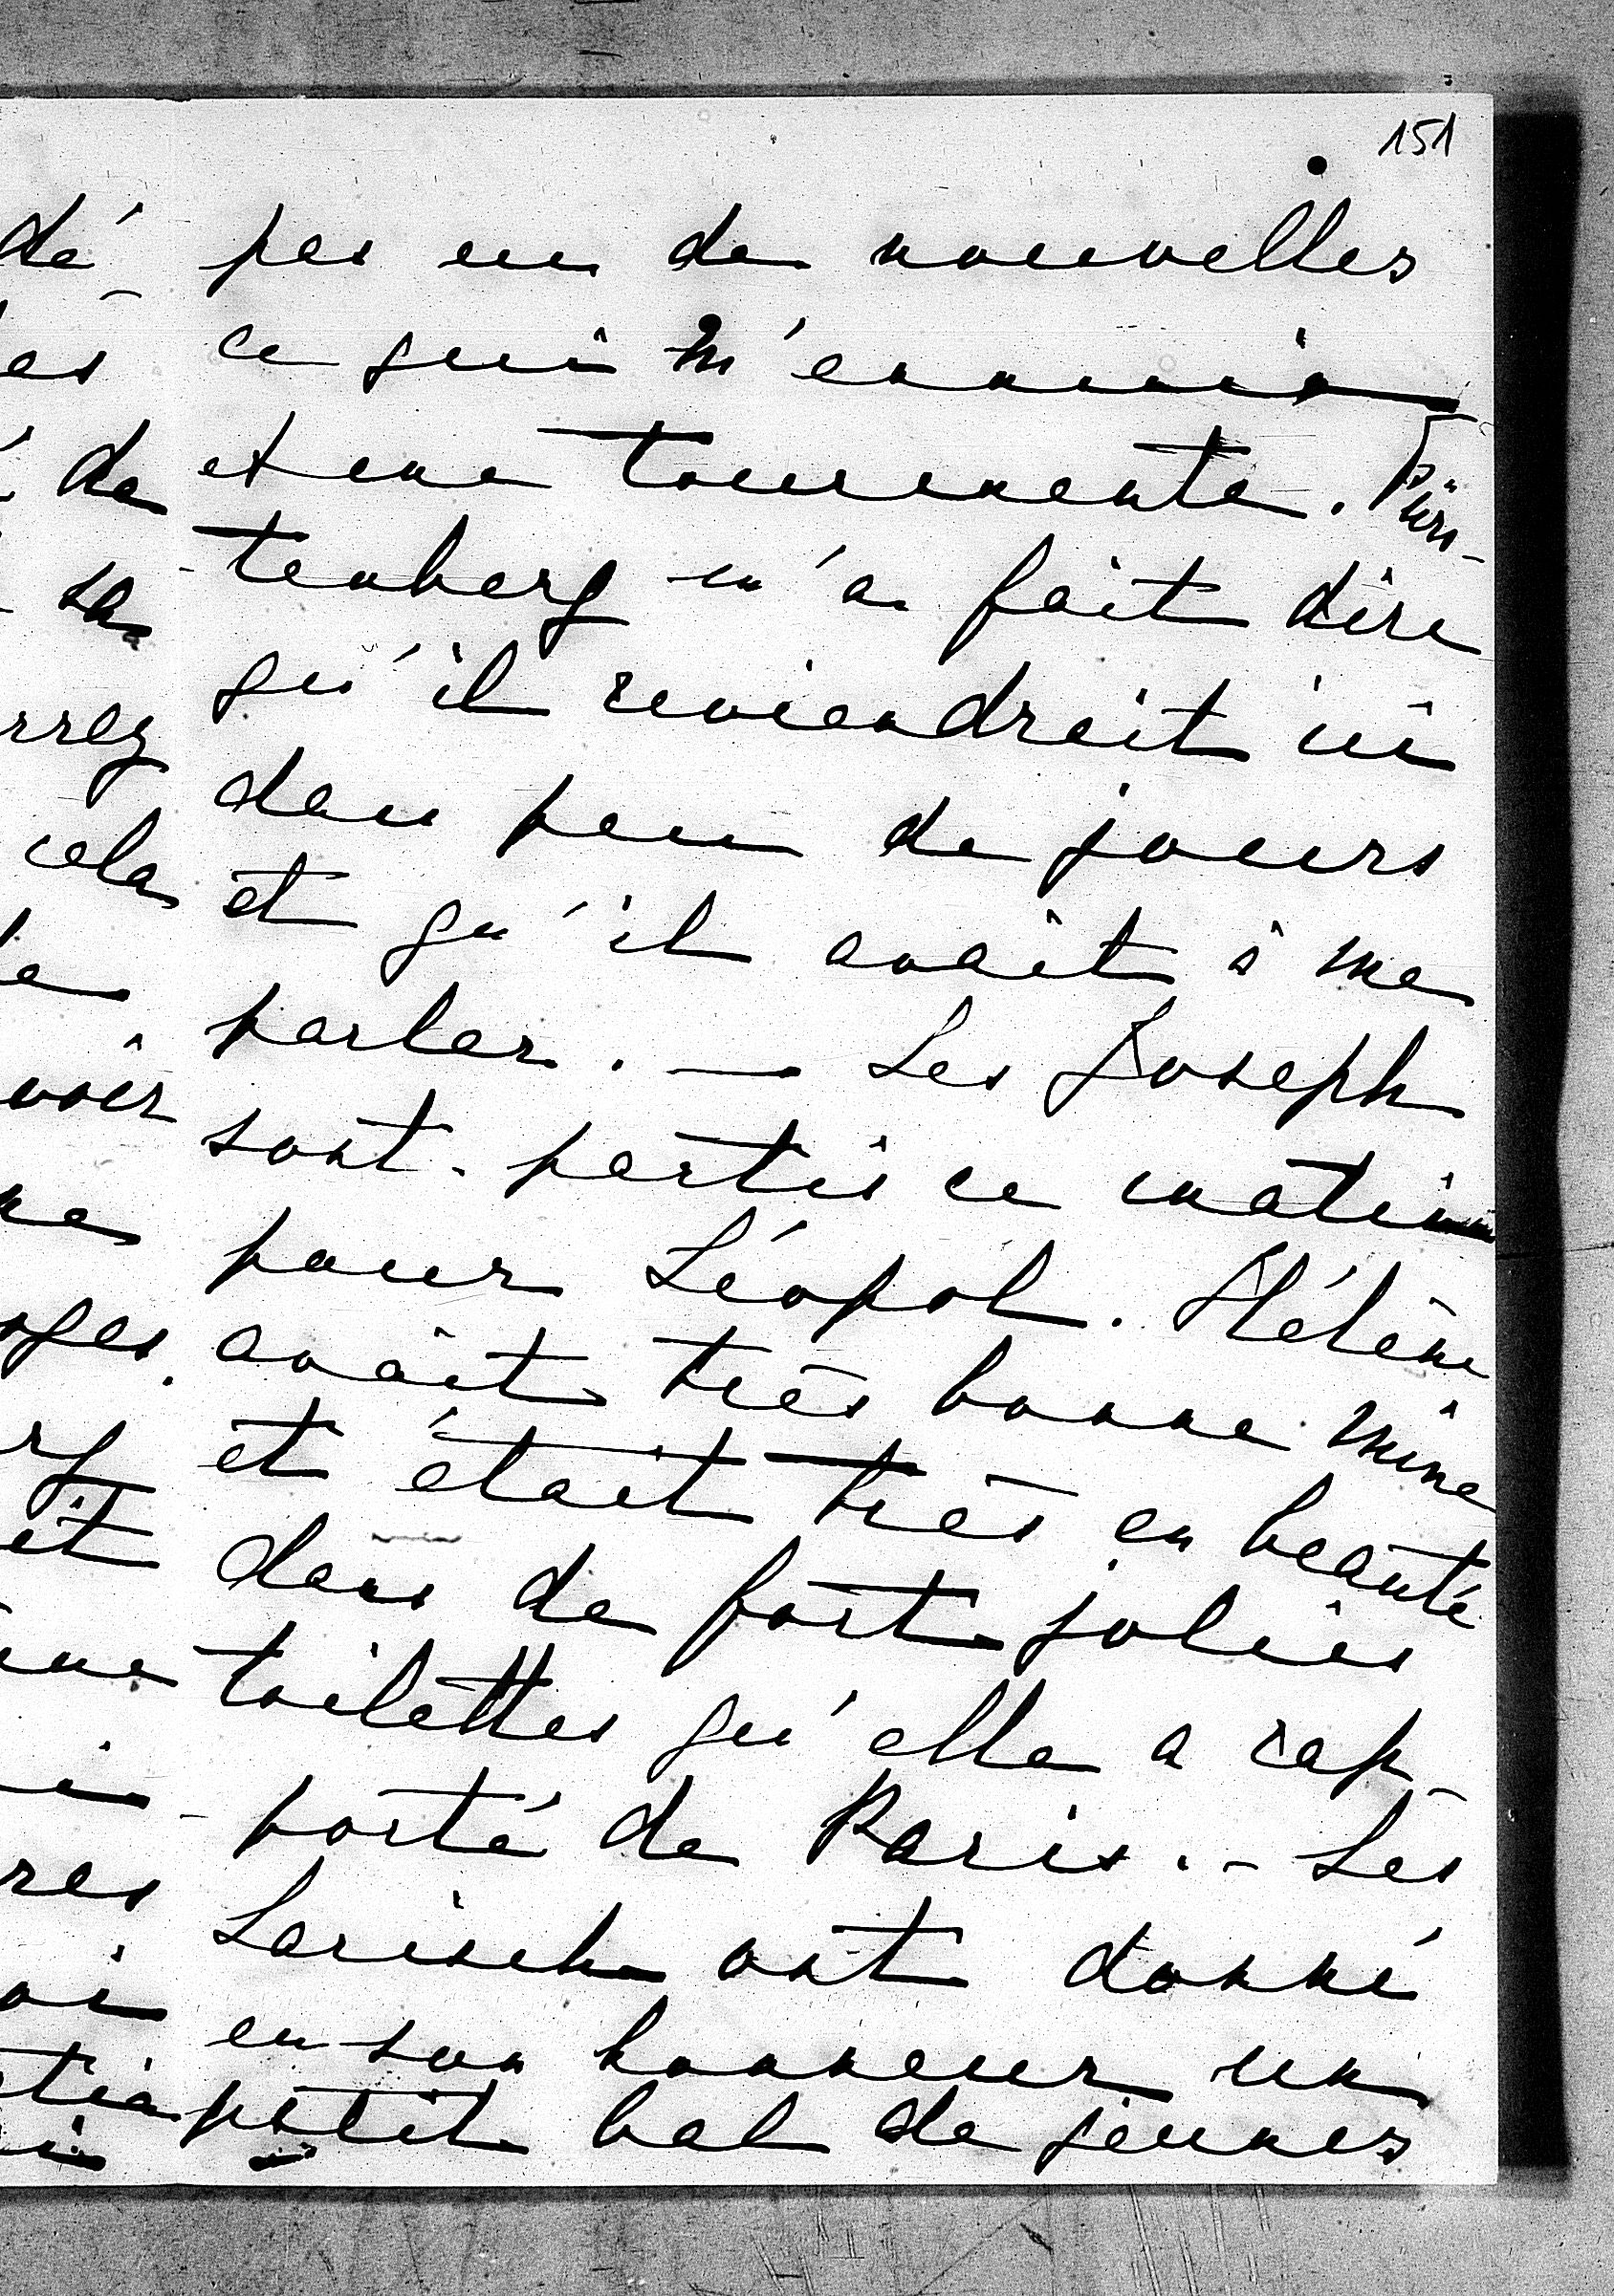 151
pas eu de nouvelles
ce qui m'ennuie
et me tourmente. Fürs-
tenberg m'a fait dire
qu'il reviendrait ici
dans peu de jours
et qu'il avait à me
parler. — Les Joseph
sont partis ce matin
pour Léopol. Hélène
avait très bonne mine
et était très en beauté
dans de fort jolies
toilettes qu'elle a rap-
porté de Paris. - Les
Larisch ont donné
en son honneur un
petit bal de jeunes
dé
es
de
sa
rrez
cela
voir
oges.
res